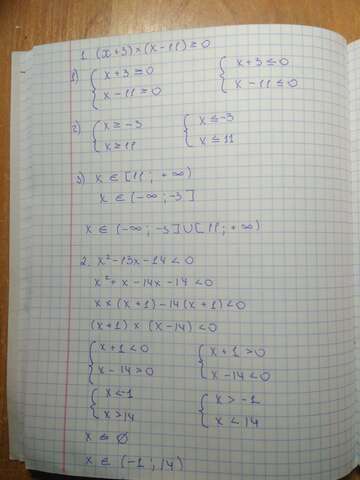 1. (x+3)×(x-11)≥0
1) { x+3≥0 { x+3≤0
x-11≥0 x-11≤0
2) { x≥-3 { x≤-3
x≥11 x≤11
3) x ∈ [11; +∞)
x ∈ (-∞; -3]
x ∈ (-∞; -3]∪[11; +∞)
2. x²-13x-14<0
x²+x-14x-14<0
x×(x+1)-14(x+1)<0
(x+1)×(x-14)<0
{ x+1<0 { x+1>0
x-14>0 x-14<0
{ x<-1 { x>-1
x>14 x<14
x ∈ ∅
x ∈ (-1; 14)